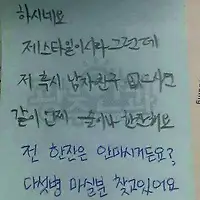 하시네요
제스타일이시라 그런데
저 혹시 남자친구 없으시면
같이 언제 술이나 한잔해요
전 한잔은 안마시거든요?
다섯병 마실분 찾고있어요